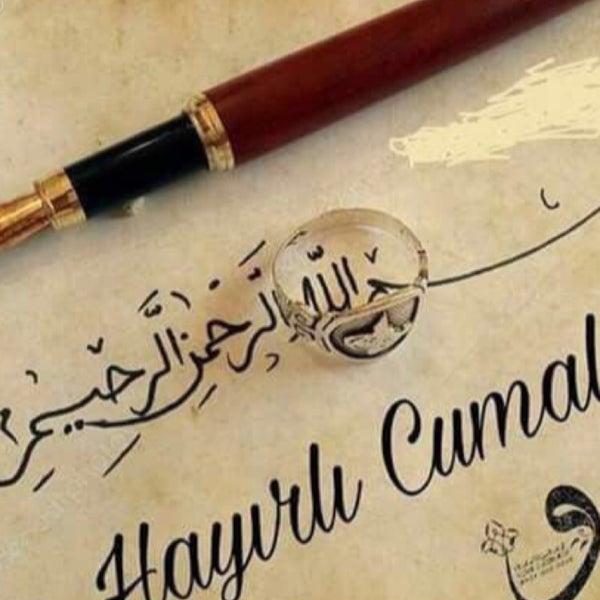 بسم الله الرحمن الرحيم
Hayırlı Cumal
و